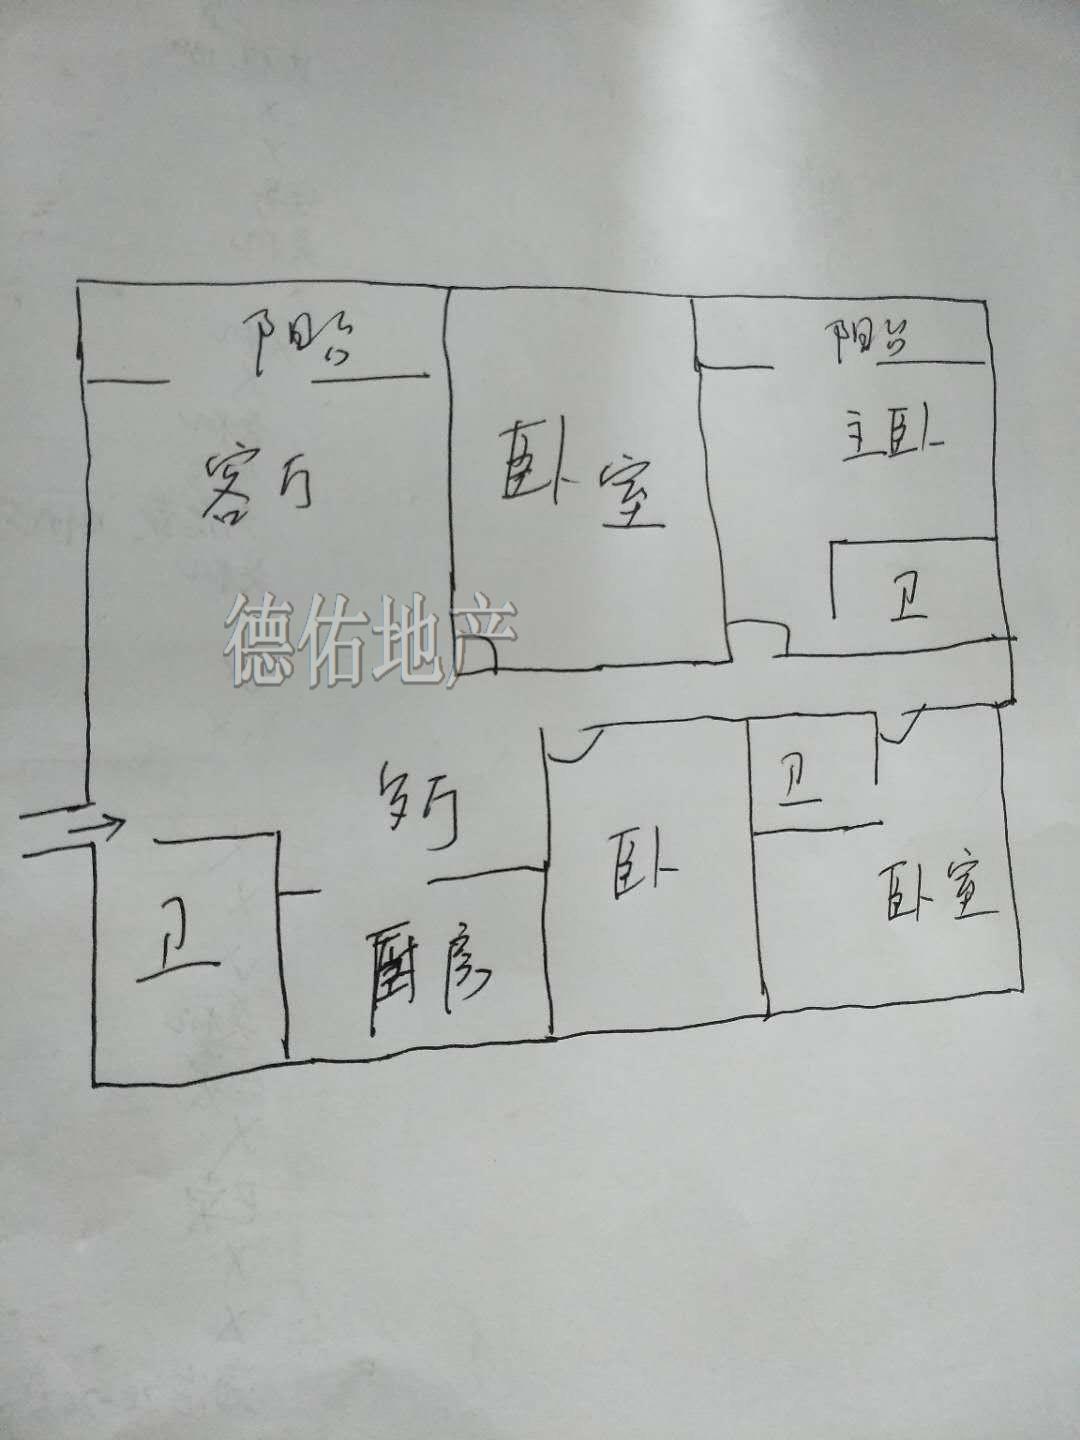 阳台
阳台
客厅
卧室
主卧
卫
德佑地产
卫
歺厅
卧
卧室
卫
厨房